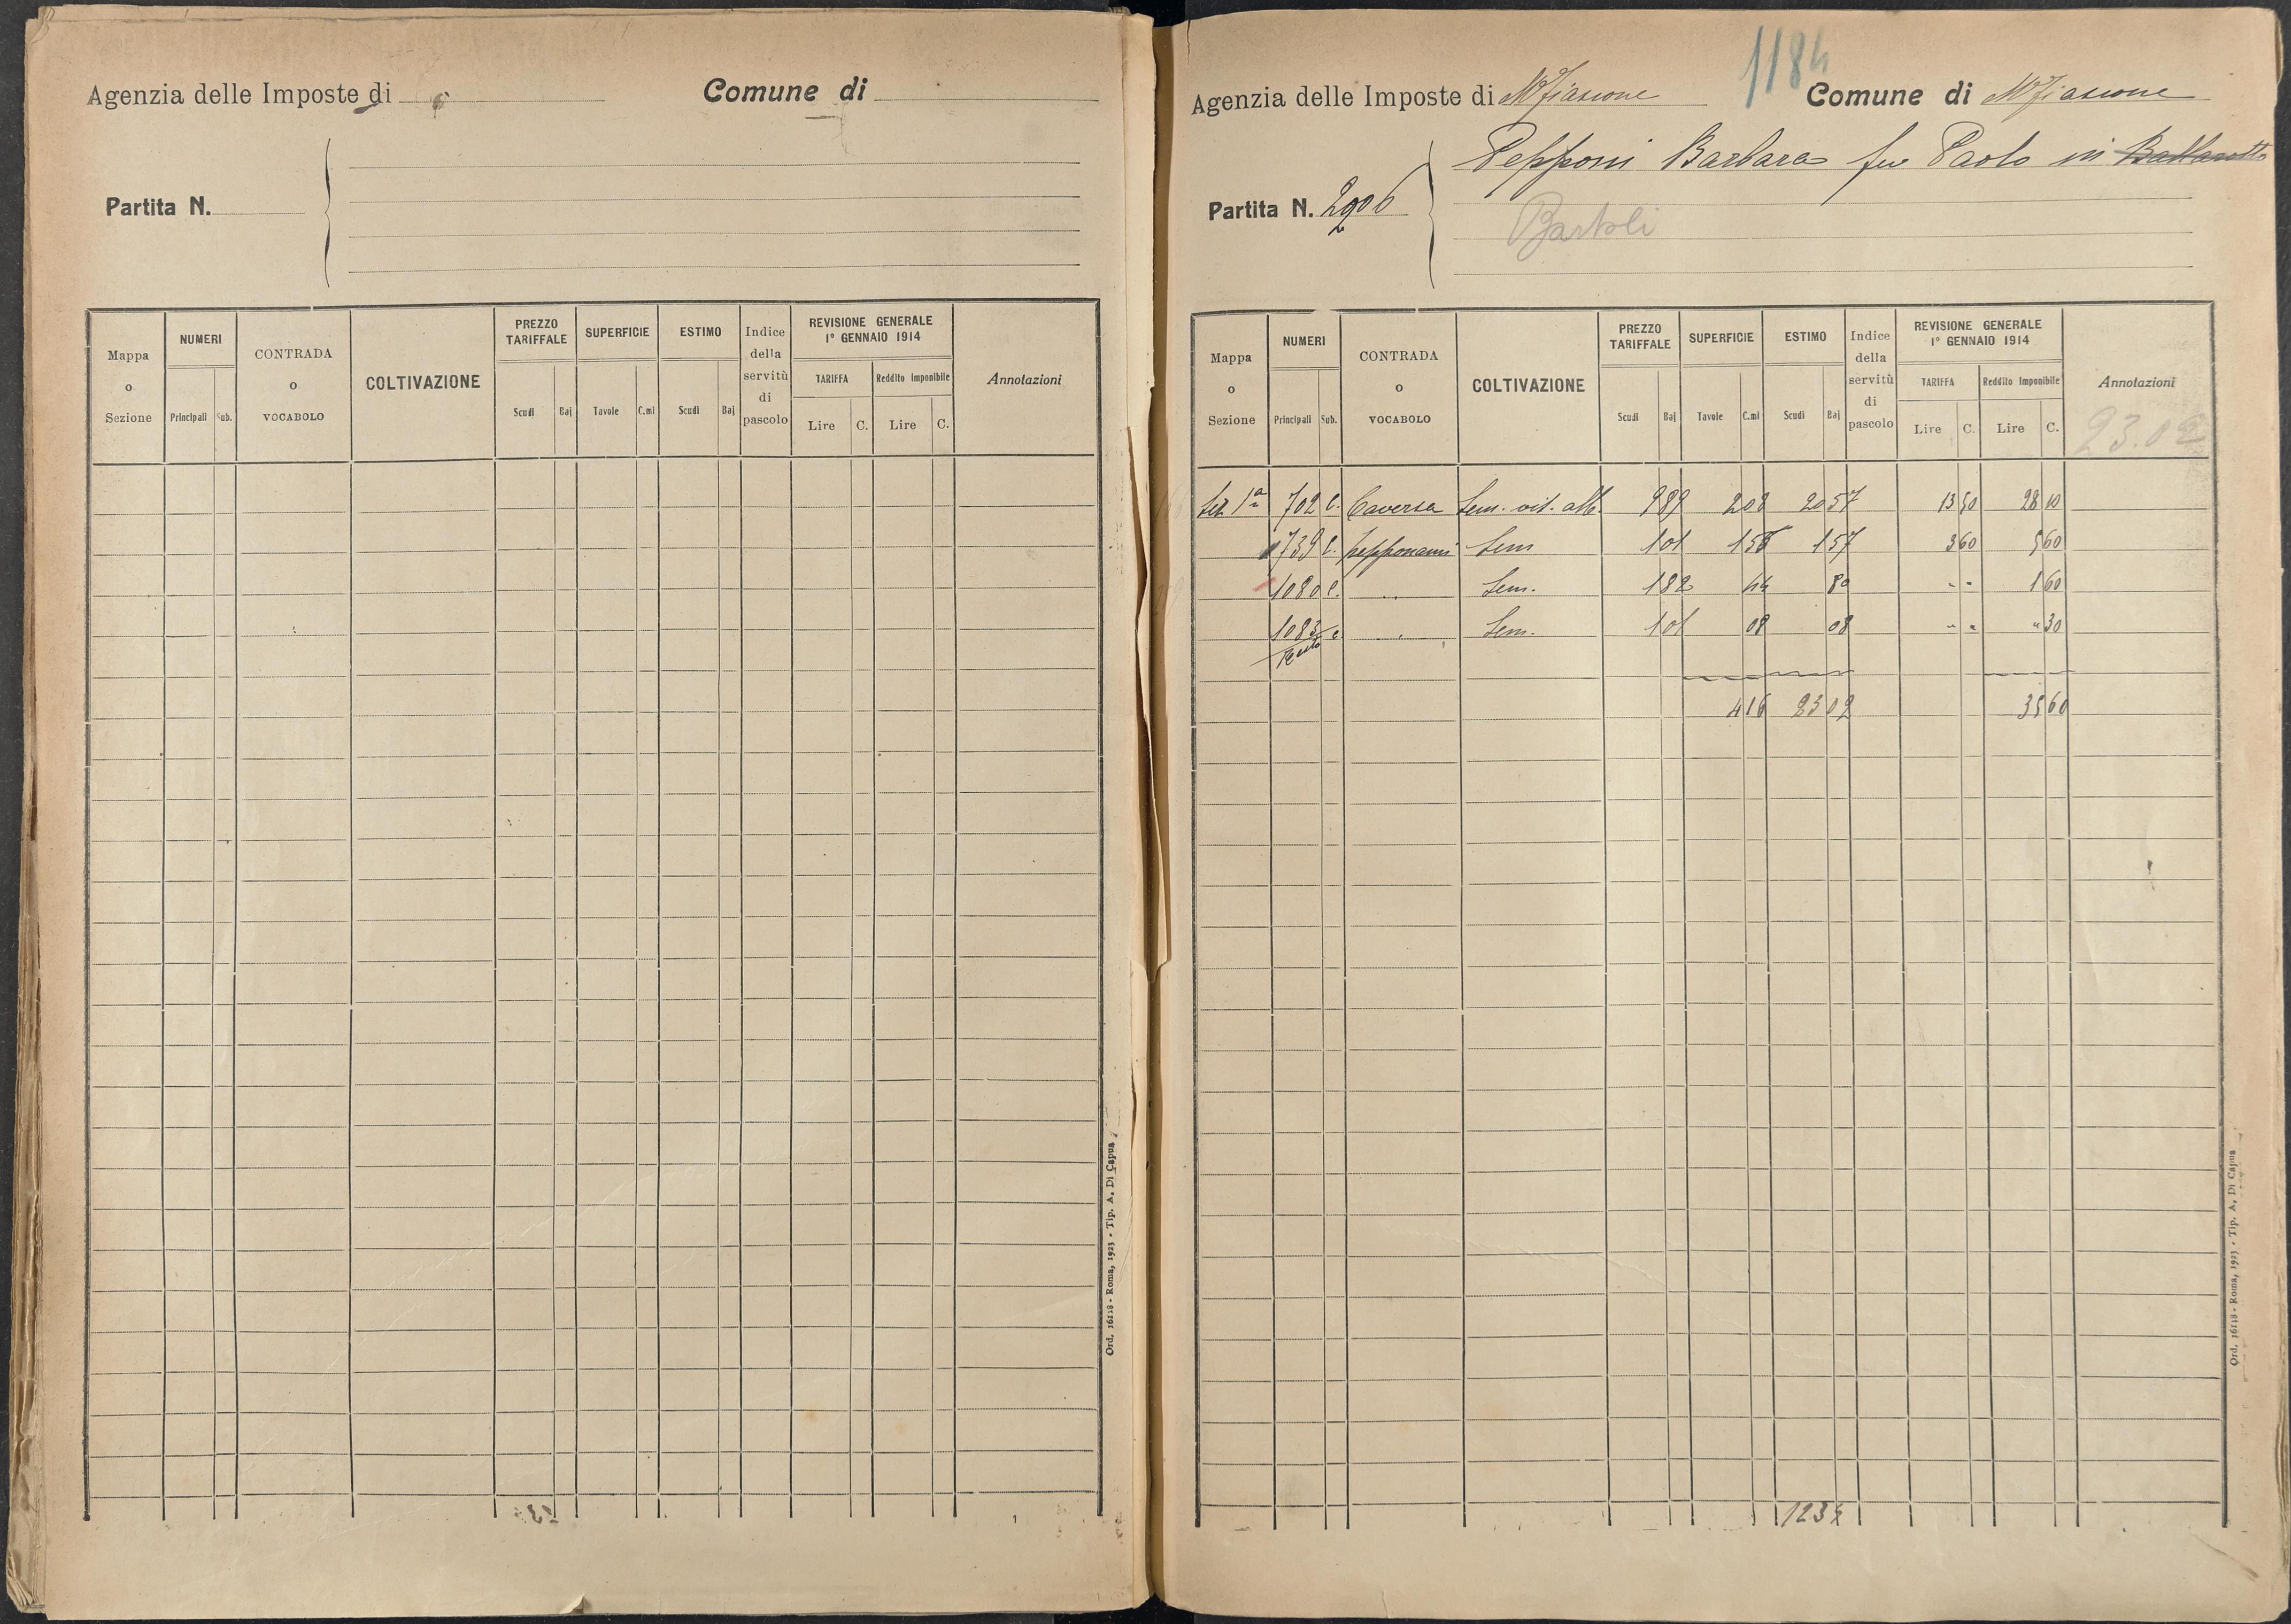 Agenzia delle Imposte di
Comune di
Partita N.
Mappa o Sezione
NUMERI
Principali Sub.
CONTRADA o VOCABOLO
COLTIVAZIONE
PREZZO TARIFFALE
Scudi Baj
SUPERFICIE
Tavole C.mi
ESTIMO
Scudi Baj
Indice della servitù di pascolo
REVISIONE GENERALE
1° GENNAIO 1914
TARIFFA Reddito Imponibile
Lire C. Lire C.
Annotazioni
Ord. 16118 - Roma, 1923 - Tip. A. Di Capua
1184
Agenzia delle Imposte di Mfiascone Comune di Mfiascone
Pepponi Barbara fu Paolo in
Partita N. 2906
Bartoli
Mappa o Sezione
NUMERI
Principali Sub.
CONTRADA o VOCABOLO
COLTIVAZIONE
PREZZO TARIFFALE
Scudi Baj
SUPERFICIE
Tavole C.mi
ESTIMO
Scudi Baj
Indice della servitù di pascolo
REVISIONE GENERALE
1° GENNAIO 1914
TARIFFA Reddito Imponibile
Lire C. Lire C.
Annotazioni
23.02
Sez 1ª 702 C. Caversa Sem. vit. alb. 9 89 2 08 20 57 13 50 28 10
739 C. pepponami Sem 1 01 1 56 1 57 3 60 5 60
1080 C. " Sem. 1 82 44 80 " " 1 60
1083 C " Sem. 1 01 08 08 " " " 30
Resto
4 16 23 02 35 60
1234
Ord. 16118 - Roma, 1923 - Tip. A. Di Capua